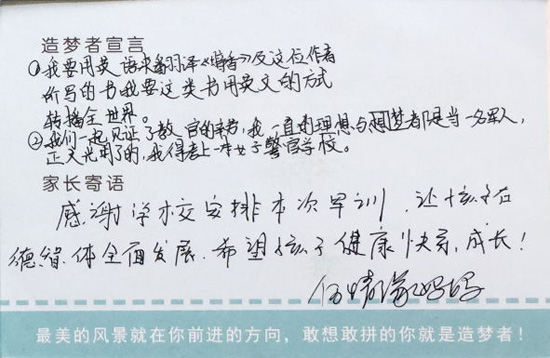 造梦者宣言
①我要用英语来翻译《 》及这位作者
所写的书我要这类书用英文的方式
转播全世界。
②我们一起见证了教官的辛苦,我一直的理想与想梦者都是当一名军人,
正义光明的,我得考上一本女子警官学校。
家长寄语
感谢学校安排本次军训,让孩子在
德智体全面发展.希望孩子健康快乐,成长!
妈妈
最美的风景就在你前进的方向,敢想敢拼的你就是造梦者!